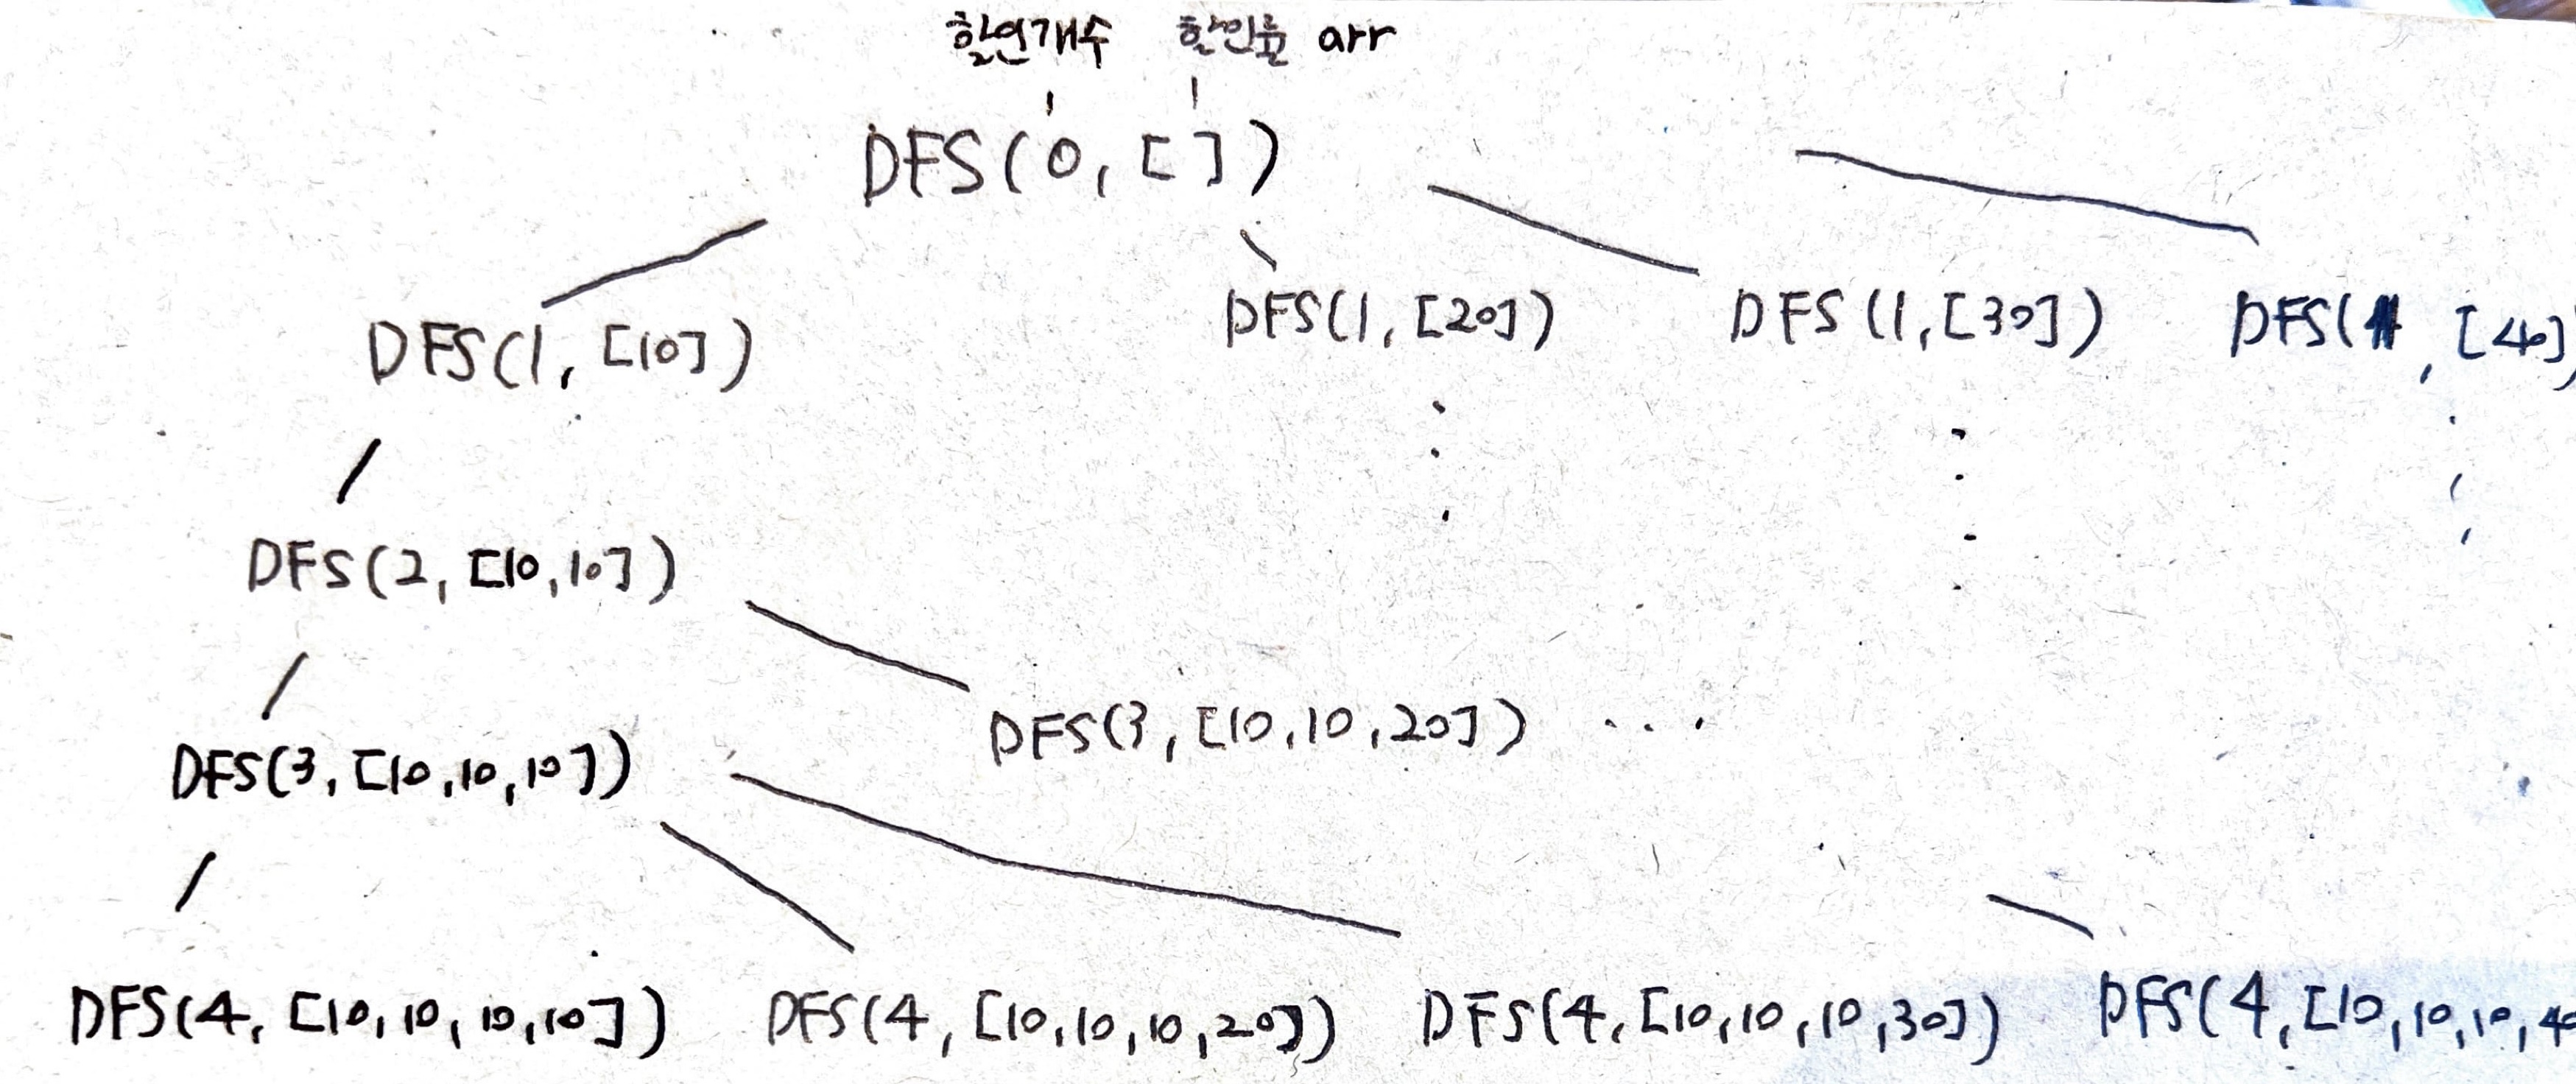 할인개수 할인율 arr
DFS(0, [])
DFS(1, [10]) DFS(1, [20]) DFS(1, [30]) DFS( , [40]
DFS(2, [10,10])
DFS(3, [10,10,10]) DFS(3, [10,10,20]) ...
DFS(4, [10,10,10,10]) DFS(4, [10,10,10,20]) DFS(4, [10,10,10,30]) DFS(4, [10,10,10,40